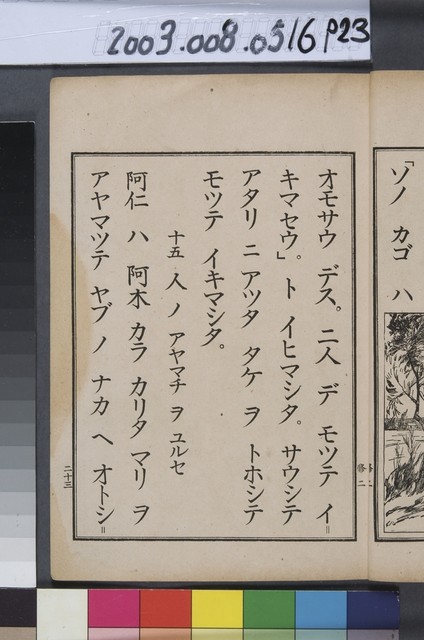 2003.008.0516 P23
「ソノ カゴ ハ
オモサウ デス。二人 デ モツテ イ＝
キマセウ」。ト イヒマシタ。サウシテ
アタリ ニ アツタ タケ ヲ トホシテ
モツテ イキマシタ。
十五 人 ノ アヤマチ ヲ ユルセ
阿仁 ハ 阿木 カラ カリタ マリ ヲ
アヤマツテ ヤブ ノ ナカ ヘ オトシ＝
二十三